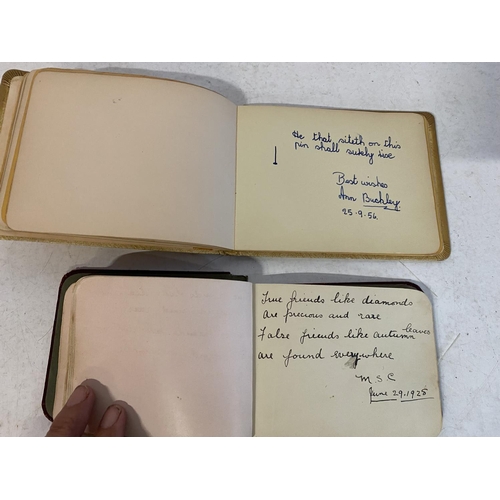 He that sitteth on this
pin shall surely rise
Best wishes
Ann Buckley.
25-9-56.
True friends like diamonds
Are precious and rare
False friends like autumn leaves
are found everywhere
M S C
June 29.1925